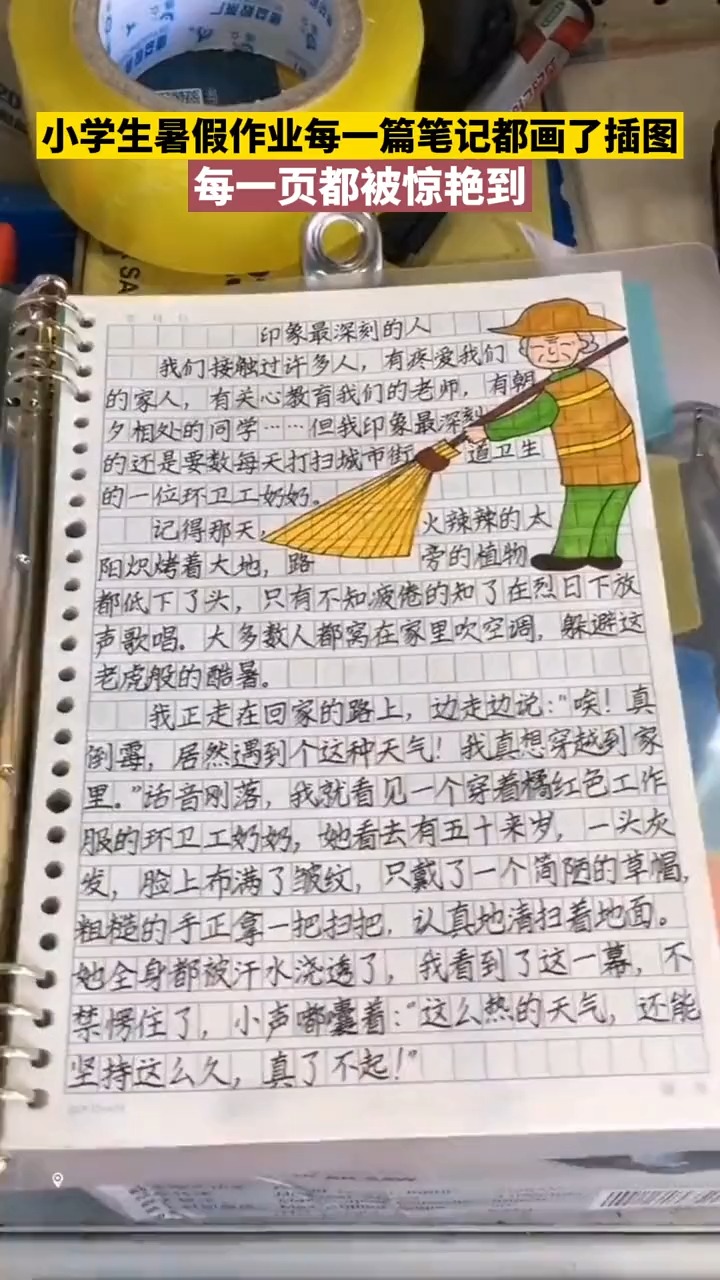 小学生暑假作业每一篇笔记都画了插图
每一页都被惊艳到
印象最深刻的人
我们接触过许多人，有疼爱我们
的家人，有关心教育我们的老师，有朝
夕相处的同学……但我印象最深刻
的还是要数每天打扫城市街道卫生
的一位环卫工奶奶。
记得那天，火辣辣的太
阳炽烤着大地，路旁的植物
都低下了头，只有不知疲倦的知了在烈日下放
声歌唱。大多数人都窝在家里吹空调，躲避这
老虎般的酷暑。
我正走在回家的路上，边走边说：“唉！真
倒霉，居然遇到个这种天气！我真想穿越到家
里。”话音刚落，我就看见一个穿着橘红色工作
服的环卫工奶奶，她看去有五十来岁，一头灰
发，脸上布满了皱纹，只戴了一个简陋的草帽，
粗糙的手正拿一把扫把，认真地清扫着地面。
她全身都被汗水浇透了，我看到了这一幕，不
禁愣住了，小声嘟囔着：“这么热的天气，还能
坚持这么久，真了不起！”